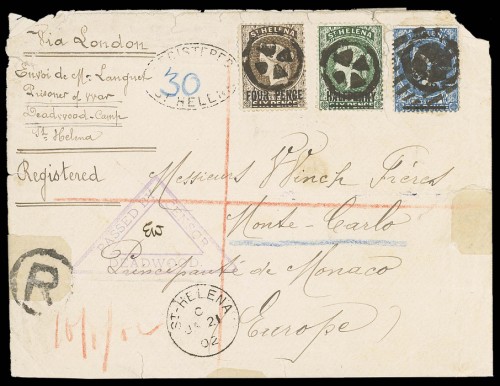 Via London
Envoi de Mr. Languet
Prisoner of War
Deadwood-Camp
St. Helena
Registered
REGISTERED
30
ST. HELENA
ST HELENA
FOUR PENCE
SIX PENCE
ST HELENA
HALFPENNY
SIX PENCE
Messieurs Winch Frères
Monte-Carlo
Principauté de Monaco
Europe
PASSED BY CENSOR
DEADWOOD
R
ST. HELENA
C
JA 21
02